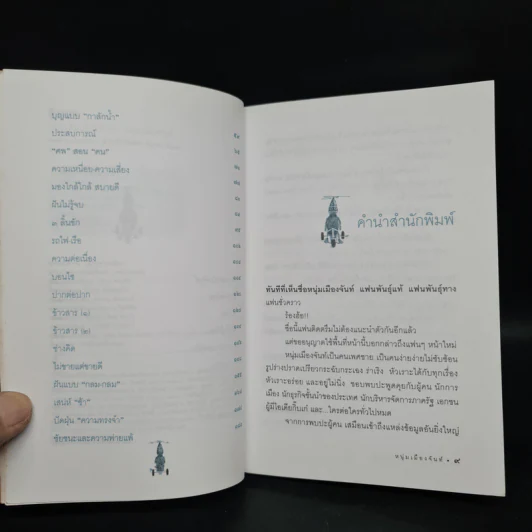 บุญแบบ "กาลักน้ำ"
ประสบการณ์
"ศพ" สอน "คน"
ความเหนื่อย-ความเสี่ยง
มองใกล้ใกล้ สบายดี
ฝันไม่รู้จบ
๓ ลิ้นชัก
รถไฟ-เรือ
ความต่อเนื่อง
บอนไซ
ปากต่อปาก
ข้าวสาร (๑)
ข้าวสาร (๒)
ช่างคิด
ไม่ขายแต่ขายดี
ฝันแบบ "กลม-กลม"
เสน่ห์ "ช้า"
ปีดฝุ่น "ความทรงจำ"
ชัยชนะและความพ่ายแพ้
คำนำสำนักพิมพ์
ทันทีที่เห็นชื่อหนุ่มเมืองจันท์ แฟนพันธุ์แท้ แฟนพันธุ์ทาง
แฟนชั่วคราว
ร้องอ้อ!!
ชื่อนี้แฟนติดตรึมไม่ต้องแนะนำตัวกันอีกแล้ว
แต่ขออนุญาตใช้พื้นที่หน้านี้บอกกล่าวถึงแฟนๆ หน้าใหม่
หนุ่มเมืองจันท์เป็นคนเพศชาย เป็นคนง่ายง่ายไม่ซับซ้อน
รูปร่างปราดเปรียวกระฉับกระเฉง ร่าเริง หัวเราะได้กับทุกเรื่อง
หัวเราะอร่อย และอยู่ไม่นิ่ง ชอบพบปะพูดคุยกับผู้คน นักการ
เมือง นักธุรกิจชั้นนำของประเทศ นักบริหารจัดการภาครัฐ เอกชน
ผู้มีไอเดียกิ๊บเก๋ และ...ใครต่อใครทั่วไปหมด
จากการพบปะผู้คน เสมือนเข้าถึงแหล่งข้อมูลอันยิ่งใหญ่
หนุ่มเมืองจันท์ • ๙